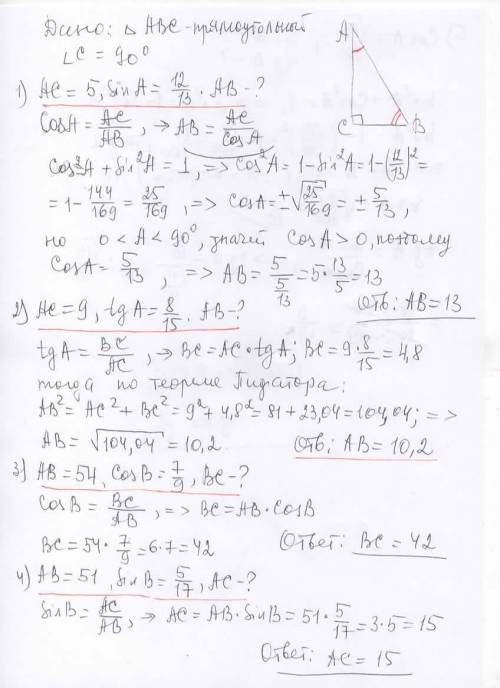 Дано: △ ABC - прямоугольный
∠C = 90°
A
C
B
1) AC = 5, sin A = 12/13. AB - ?
Cos A = AC/AB, => AB = AC/cos A
Cos²A + Sin²A = 1, => Cos²A = 1 - Sin²A = 1 - (12/13)² =
= 1 - 144/169 = 25/169, => Cos A = ±√25/169 = ± 5/13,
но 0 < A < 90°, значит Cos A > 0, потому
Cos A = 5/13, => AB = 5/(5/13) = 5 · 13/5 = 13
Отв: AB = 13
2) AC = 9, tg A = 8/15. AB - ?
tg A = BC/AC, => BC = AC · tg A; BC = 9 · 8/15 = 4,8
тогда по теореме Пифагора:
AB² = AC² + BC² = 9² + 4,8² = 81 + 23,04 = 104,04; =>
AB = √104,04 = 10,2
Отв: AB = 10,2
3) AB = 54, Cos B = 7/9, BC - ?
Cos B = BC/AB, => BC = AB · Cos B
BC = 54 · 7/9 = 6 · 7 = 42
Ответ: BC = 42
4) AB = 51, Sin B = 5/17, AC - ?
Sin B = AC/AB, => AC = AB · Sin B = 51 · 5/17 = 3 · 5 = 15
Ответ: AC = 15